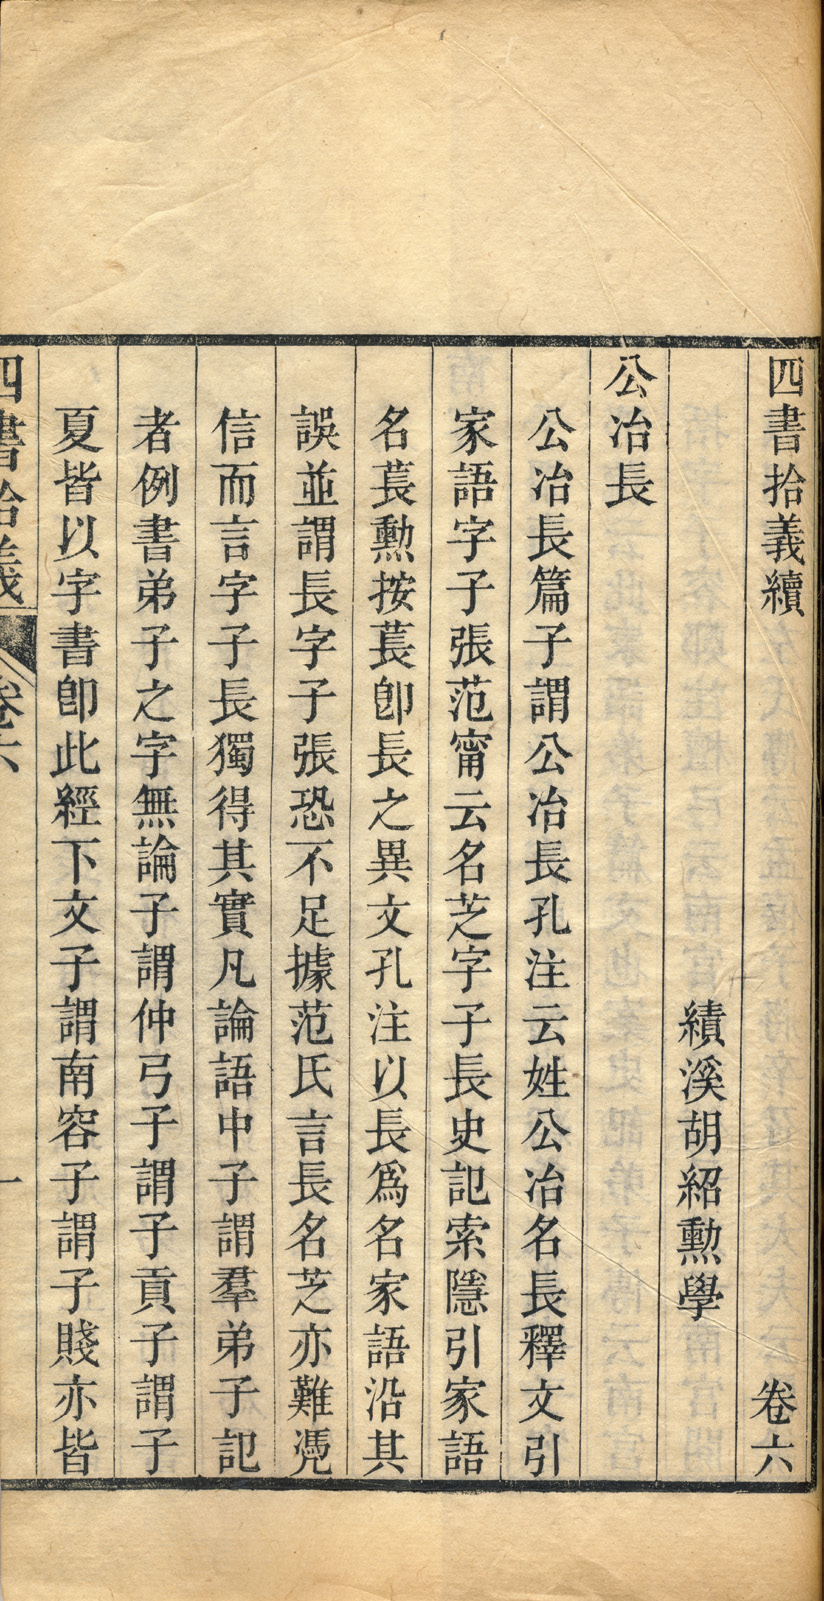 四書拾義續 卷六
績溪胡紹勳學
公冶長
公冶長篇子謂公冶長孔注云姓公冶名長釋文引
家語字子張范甯云名芝字子長史記索隱引家語
名萇勳按萇卽長之異文孔注以長爲名家語沿其
誤並謂長字子張恐不足據范氏言長名芝亦難凴
信而言字子長獨得其實凡論語中子謂羣弟子記
者例書弟子之字無論子謂仲弓子謂子貢子謂子
夏皆以字書卽此經下文子謂南容子謂子賤亦皆
四書拾義 卷六 一